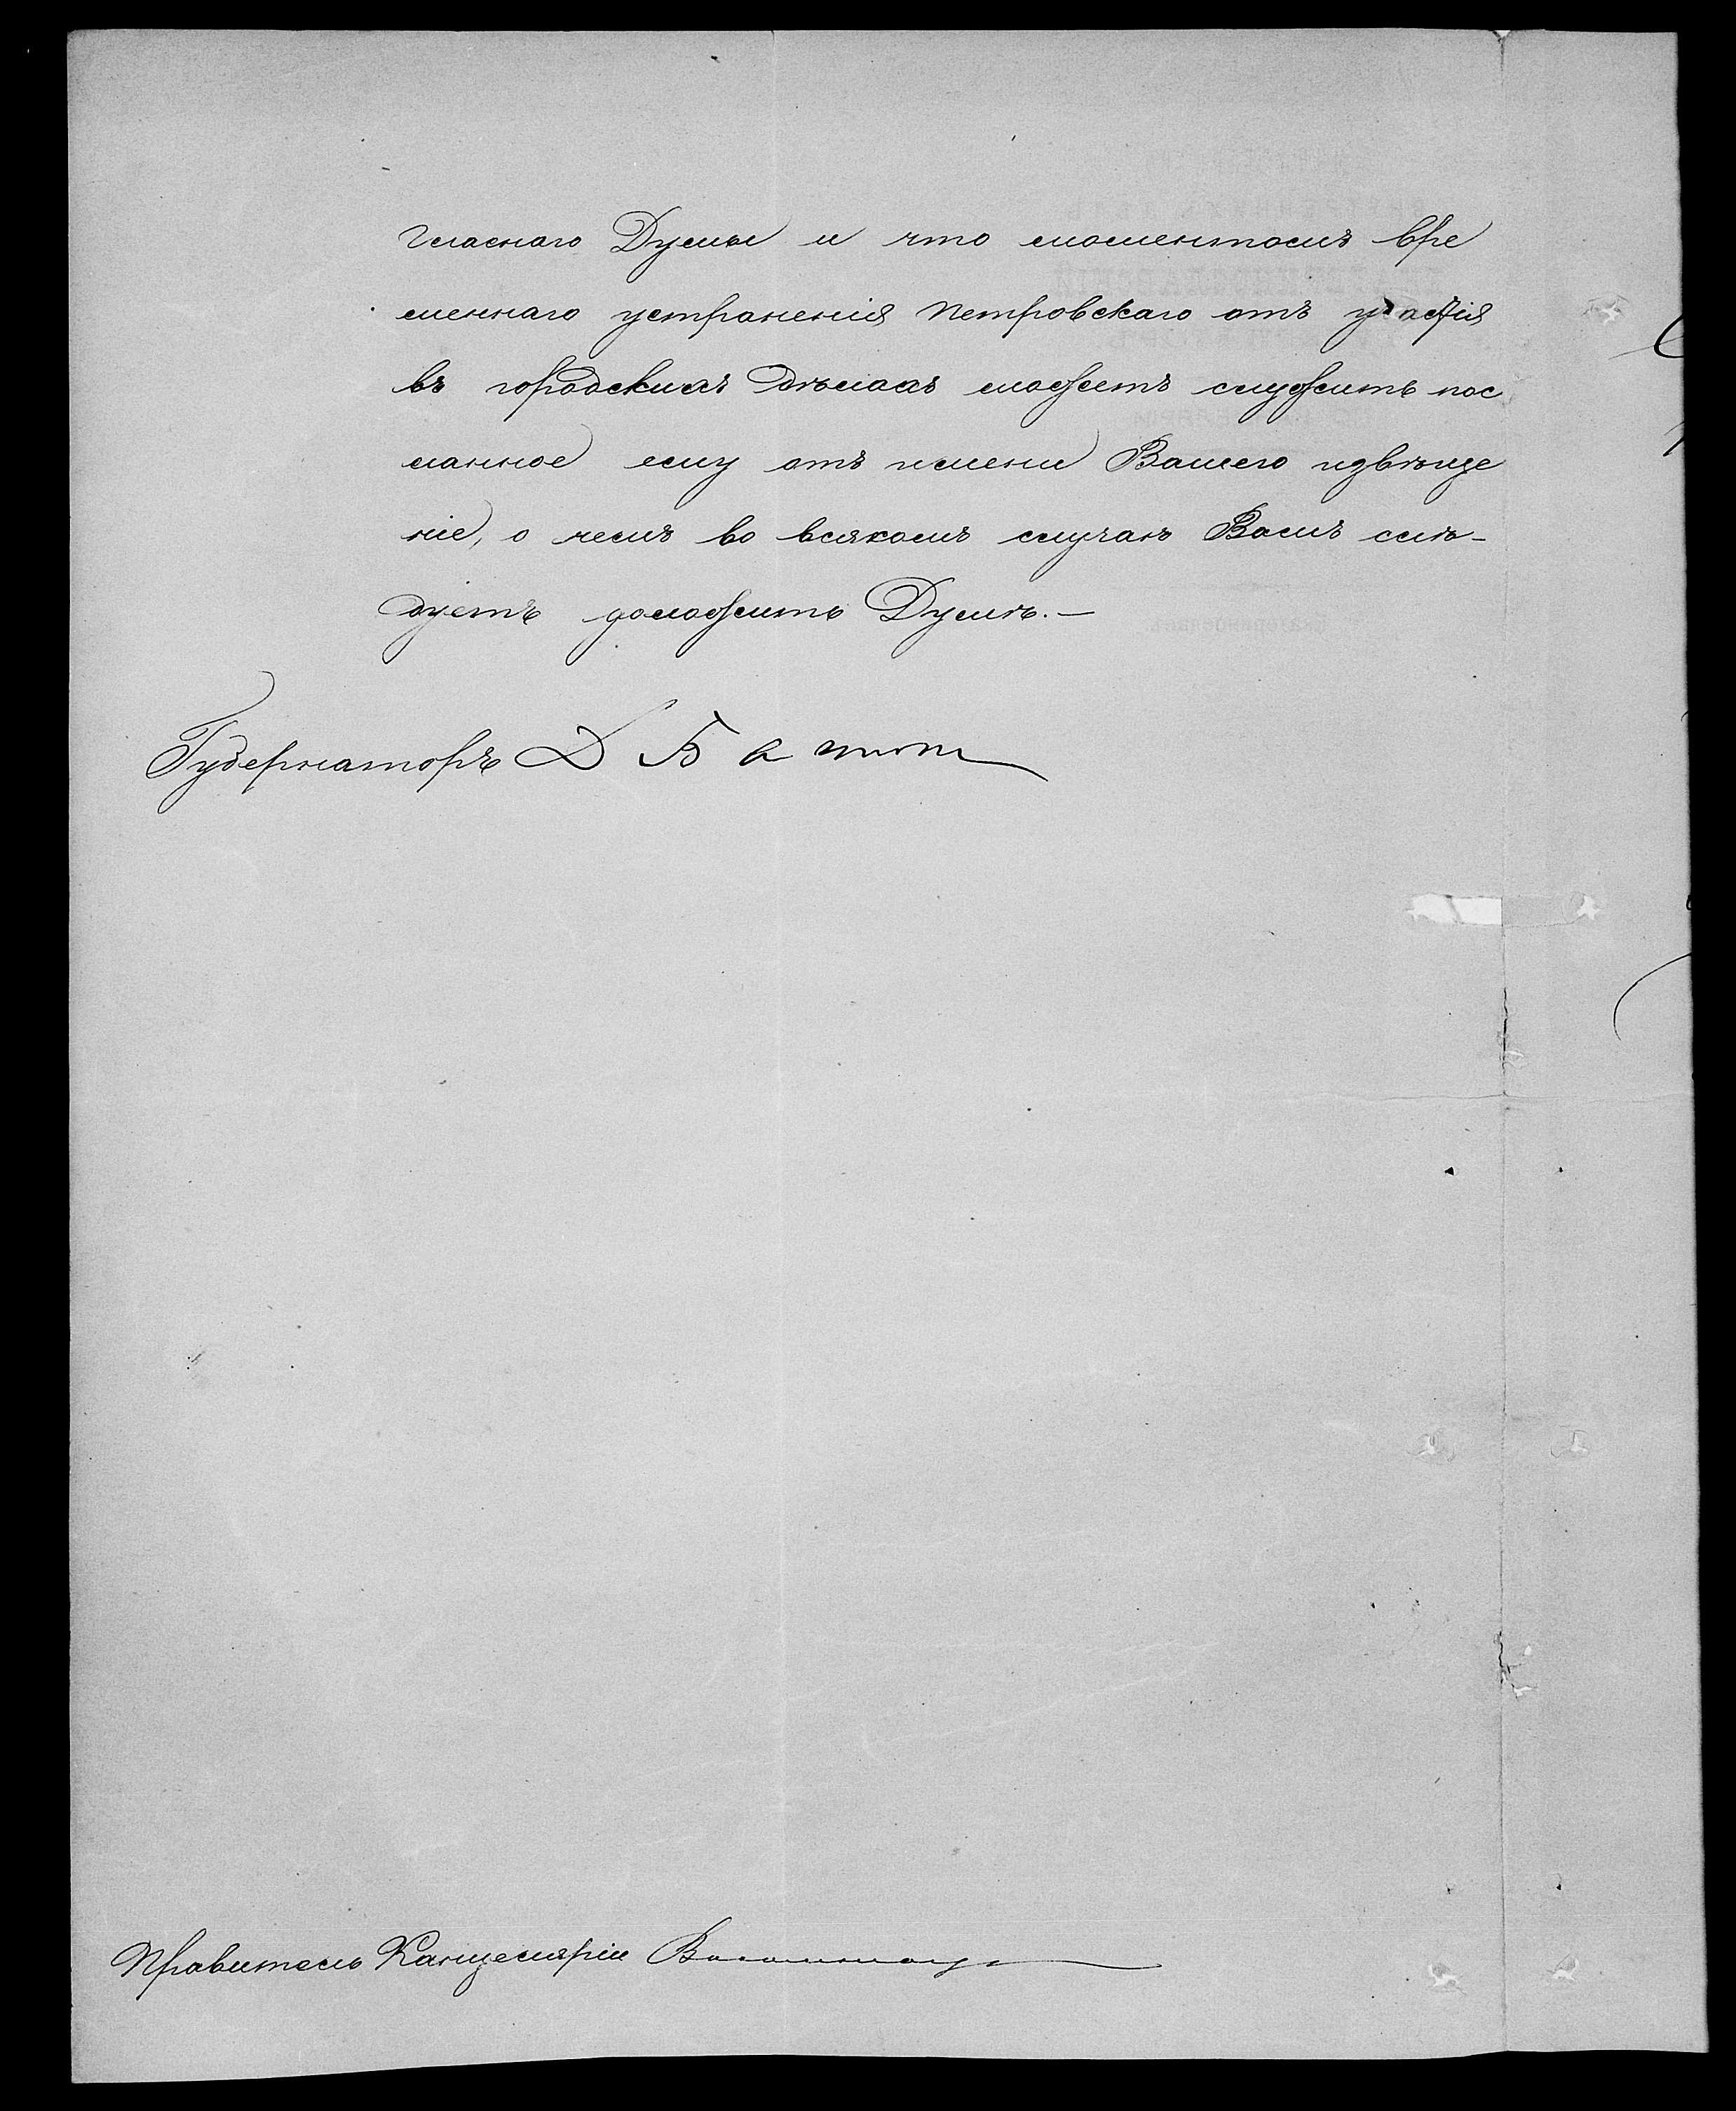 гласнаго Думы и что моментомъ вре
меннаго устраненія Петровскаго отъ участія
въ городскихъ дѣлахъ можетъ служить пос
ланное ему отъ имени Вашего извѣще
ніе, о чемъ во всякомъ случаѣ Вамъ слѣ-
дуетъ доложить Думѣ.—
Губернаторъ Д Б
Правитель Канцеляріи